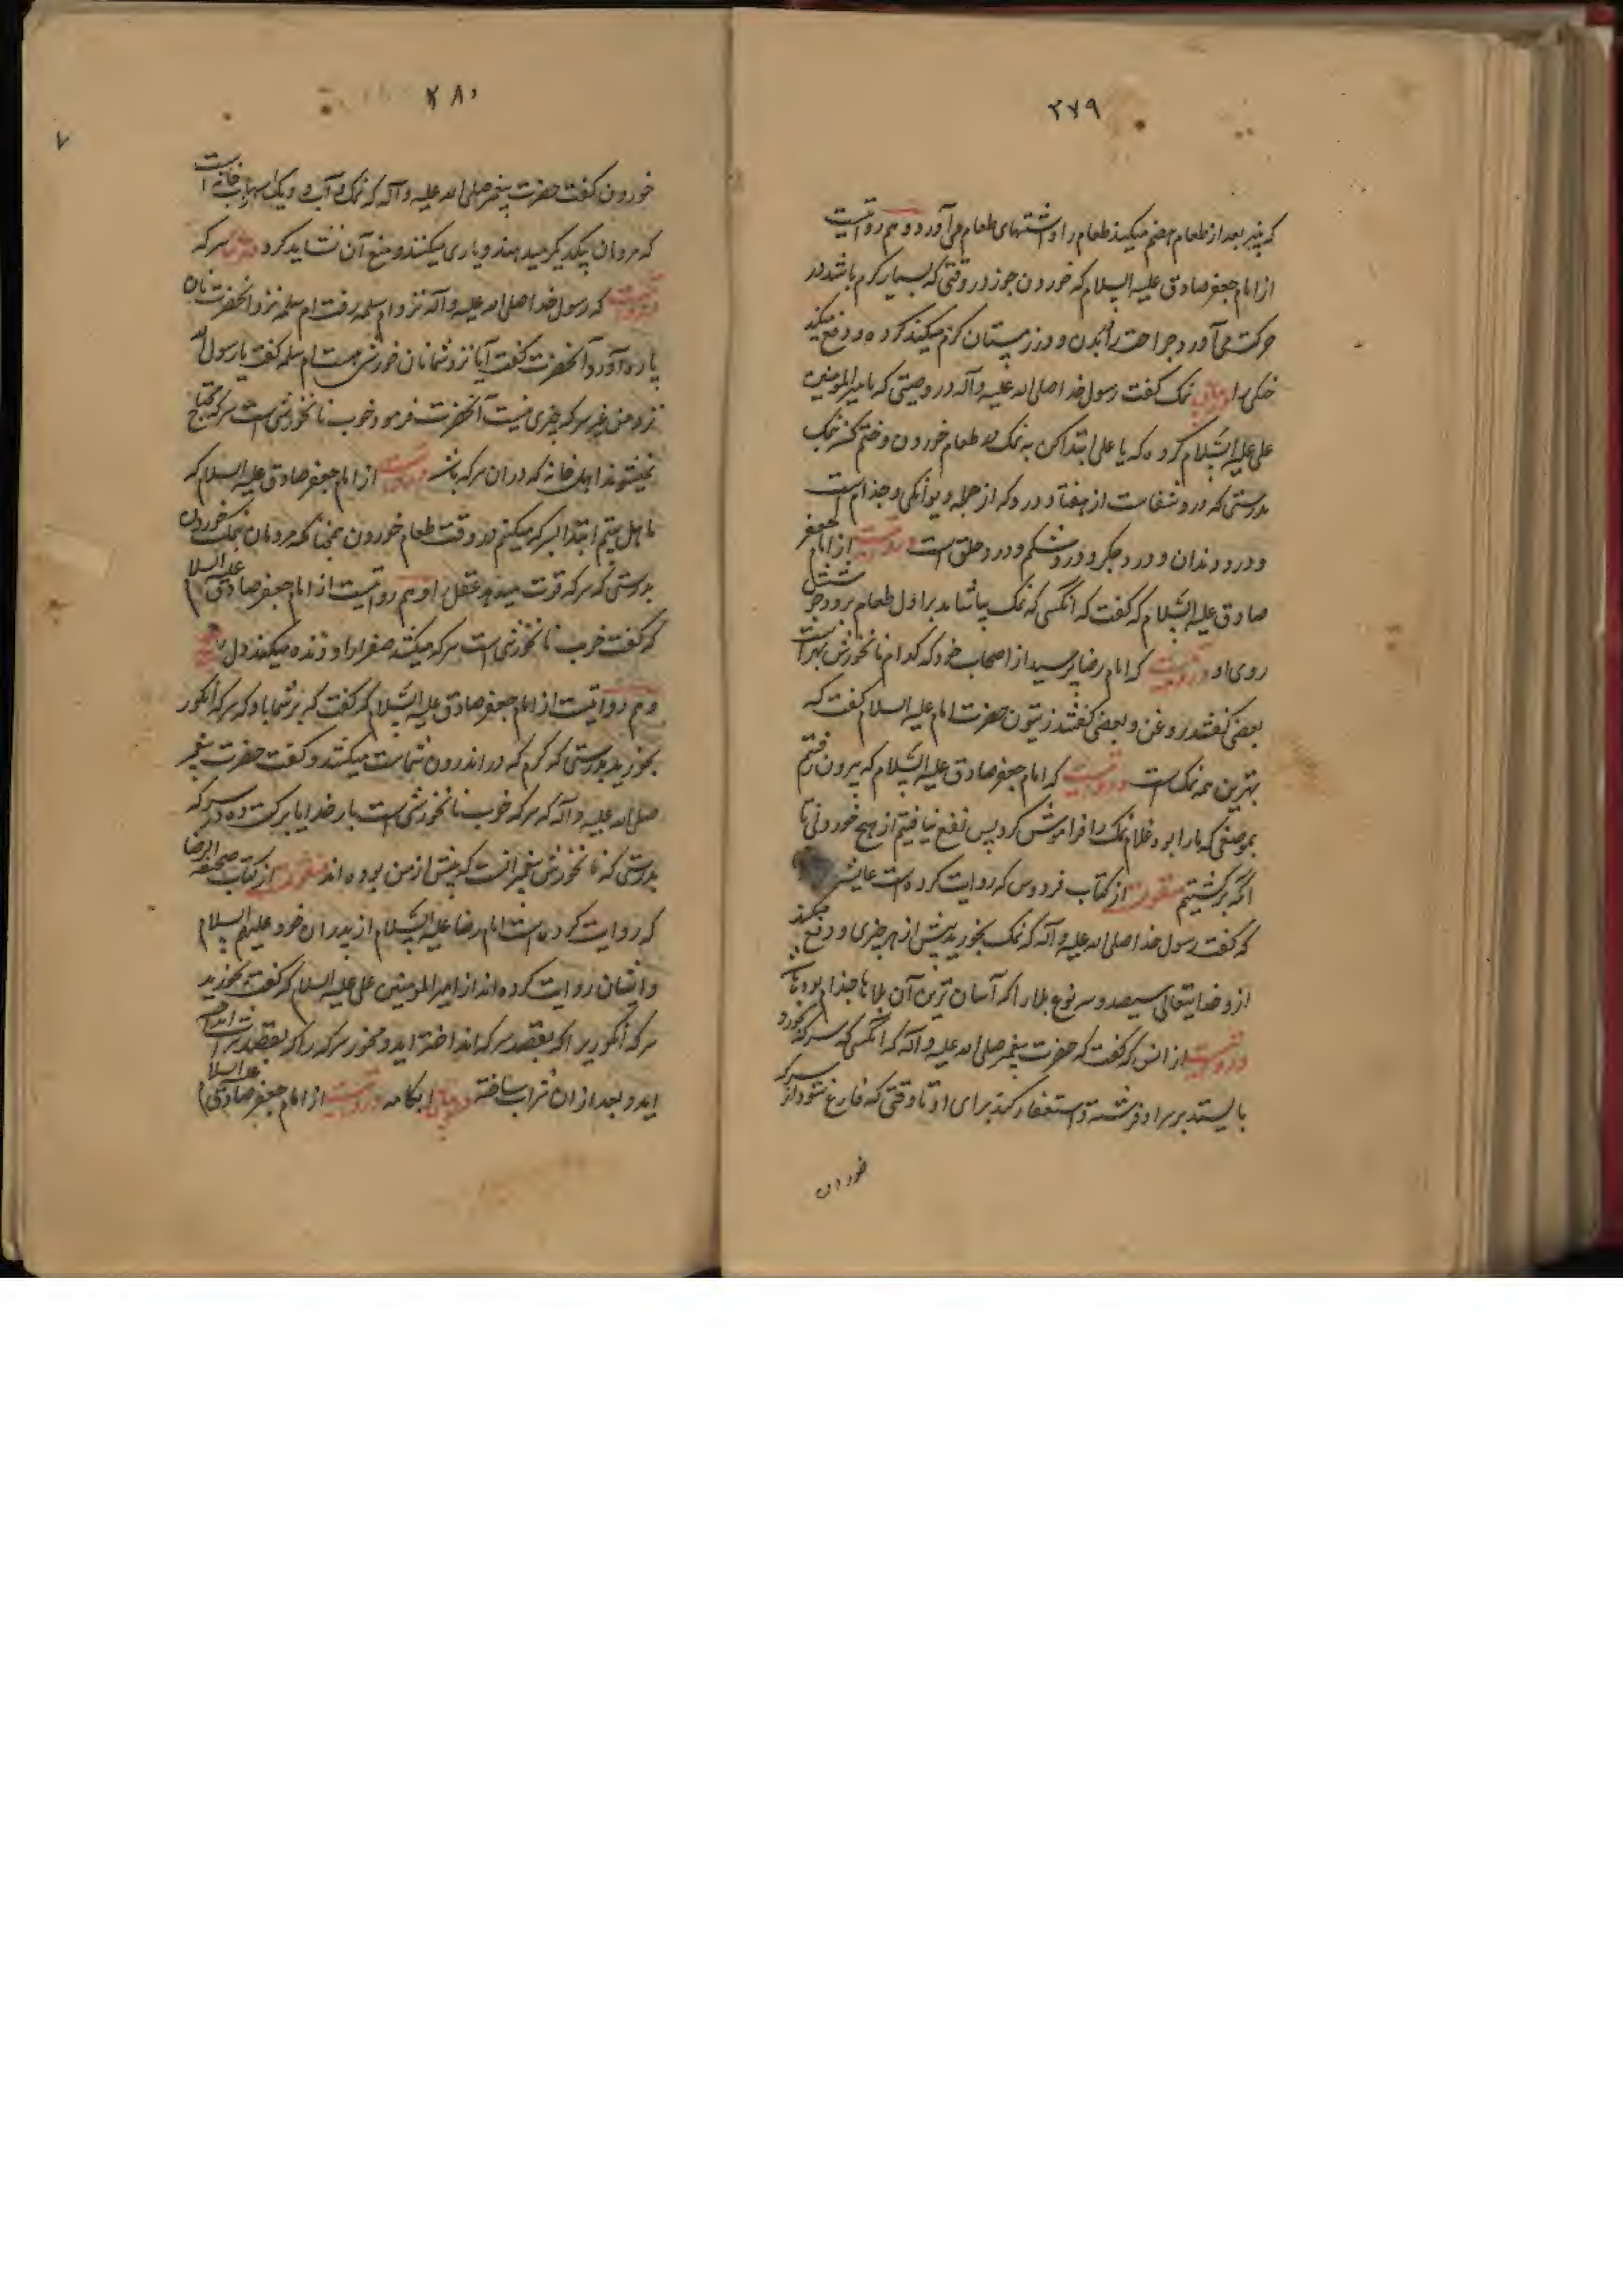 ۲۷۹
که پنیر بعد از طعام هضم میکند طعام را و اشتهای طعام می آورد و هم روایتست
از امام جعفر صادق علیه السلام که خوردن جوز در وقتی که بسیار گرم باشد در
حرکت می آورد جراحت را در بدن و در زمستان گرم میکند گرده و دفع میکند
خنکی را در بیان نمک گفت رسول خدا صلی الله علیه و آله در وصیتی که با میرالمومنین
علی علیه السلام کرده که یا علی ابتدا کن به نمک در طعام خوردن و ختم کن نمک
بدرستی که درو شفاست از هفتاد درد که از جمله دیوانگی و جذام است
و درد دندان و درد جگر و درد شکم و درد حلق است و روایتست از امام جعفر
صادق علیه السلام که گفت که انکسی که نمک بپاشاند بر اول طعام برود
روی او و روایتست که امام رضا پرسید از اصحاب خود که کدام نانخورش بهتر است
بعضی گفتند روغن و بعضی گفتند زیتون حضرت امام علیه السلام گفت که
بهترین همه نمک است و روایتست که امام جعفر صادق علیه السلام که بیرون رفتم
بموضعی که ما را بود غلام نمک را فراموش کرد پس نفع نیافتیم از هیچ خوردنی تا
آنکه برگشتیم منقولست از کتاب فردوس که روایت کرده است عایشه
که گفت رسول خدا صلی الله علیه و آله که نمک بخورید پیش از هر چیزی و دفع میکند
ازو خدایتعالی سیصد و سی نوع بلا را که آسان ترین آن بلاها جذام بود
و روایتست از انس که گفت که حضرت پیغمبر صلی الله علیه و آله که انکسی که سرکه بخورد
بایستد بر سر او فرشته و استغفار کند برای او تا وقتی که فارغ شود از سرکه
خوردن
۲۸۰
۷
خوردن گفت حضرت پیغمبر صلی الله علیه و آله که نمک و آب و دیک اسباب خانه است
که مردمان بیکدیگر میدهند و یاری میکنند و منع آن نشاید کرد سرکه
و روایتست که رسول خدا صلی الله علیه و آله نزد ام سلمه رفت ام سلمه نزد انحضرت نان
پاره آورد و آنحضرت گفت آیا نزد شما نان خورش هست ام سلمه گفت یا رسول الله
نزد من غیر سرکه چیزی نیست آنحضرت فرمود خوب نانخورشی است سرکه محتاج
نمیشوند اهل خانه که دران سرکه باشد و روایتست از امام جعفر صادق علیه السلام که
ما اهل بیتیم ابتدا بسرکه میکنیم در وقت طعام خوردن همچنانکه مردمان بنمک خوردن
بدرستی که سرکه قوت میدهد عقل را و هم روایتست از امام جعفر صادق علیه السلام
که گفت خوب نانخورشی است سرکه میکشد صفرا را و زنده میکند دل را
و هم روایتست از امام جعفر صادق علیه السلام که گفت که بر شما باد که سرکه انگور
بخورید بدرستی که کرم که در اندرون شماست میکشد و گفت حضرت پیغمبر
صلی الله علیه و آله که سرکه خوب نانخورشی است بار خدایا برکت ده در سرکه
بدرستی که نانخورش پیغمبرانست که پیش از من بوده اند منقولست از کتاب صحیفه الرضا
که روایت کرده است امام رضا علیه السلام از پدران خود علیهم السلام
و ایشان روایت کرده اند از امیرالمومنین علی علیه السلام که گفت بخورید
سرکه انگوری را که بقصد سرکه انداخته اید و مخورید سرکه را که بقصد شراب انداخته
اید و بعد از ان شراب ساخته در بیان ابکامه و روایتست از امام جعفر صادق علیه السلام